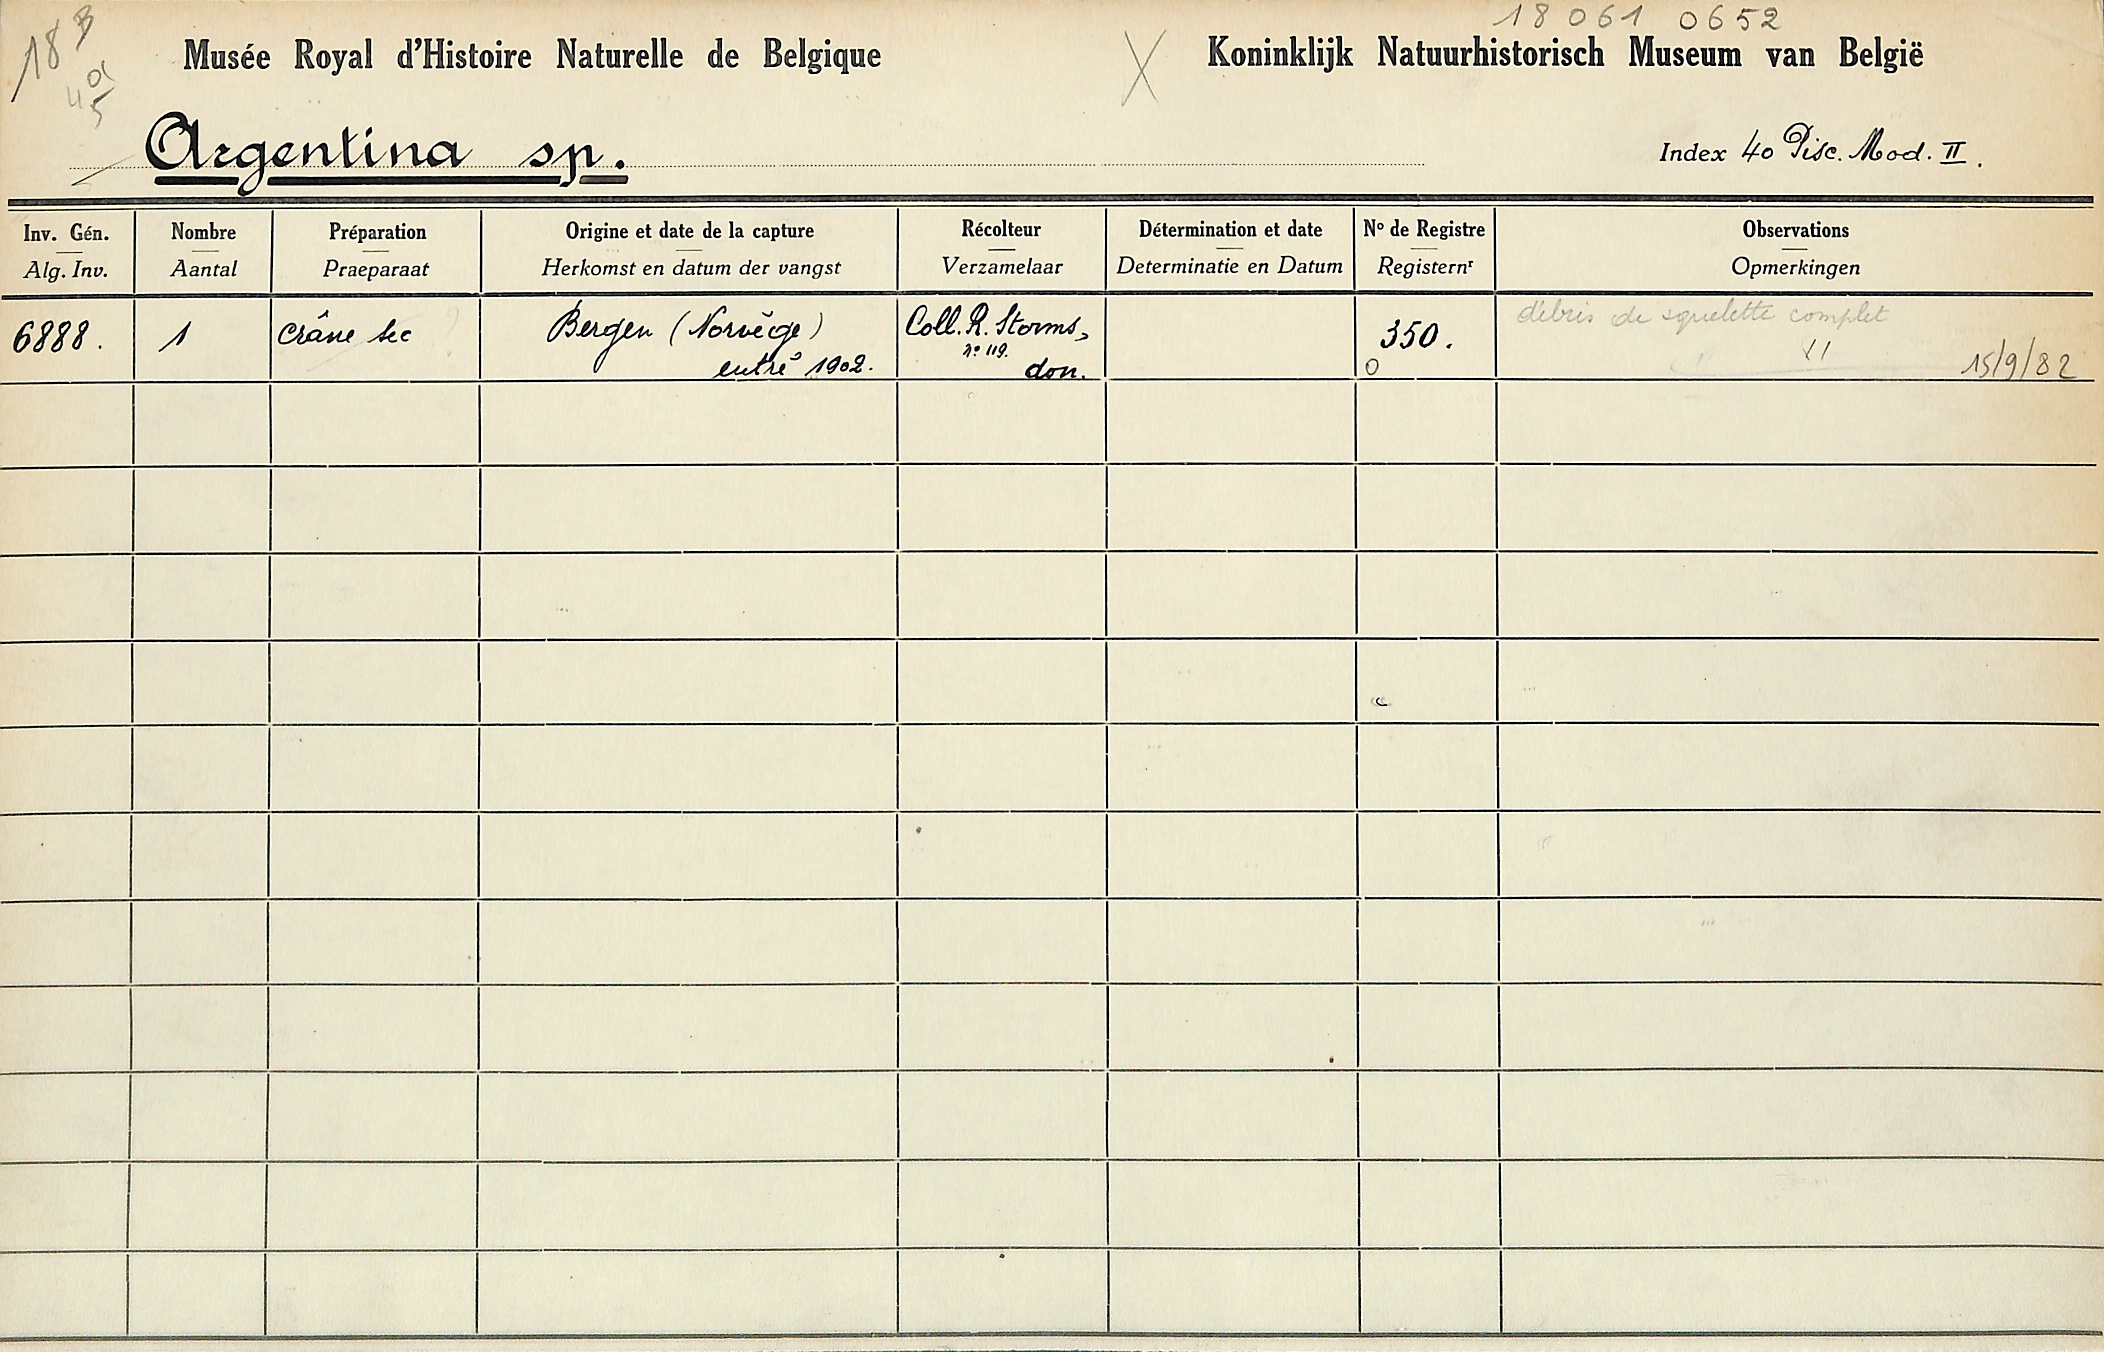 18 B
18 061 0652
Musée Royal d'Histoire Naturelle de Belgique
X
Koninklijk Natuurhistorisch Museum van België
Argentina sp.
Index 40 Pisc. Mod. II.
Inv. Gén. Nombre Préparation Origine et date de la capture Récolteur Détermination et date No de Registre Observations
Alg. Inv. Aantal Praeparaat Herkomst en datum der vangst Verzamelaar Determinatie en Datum Registernr Opmerkingen
6888. 1 crâne sec ? Bergen (Norvège) Coll. R. Storms, 350. débris de squelette complet
no 119.
entré 1902. don. 0 15/9/82